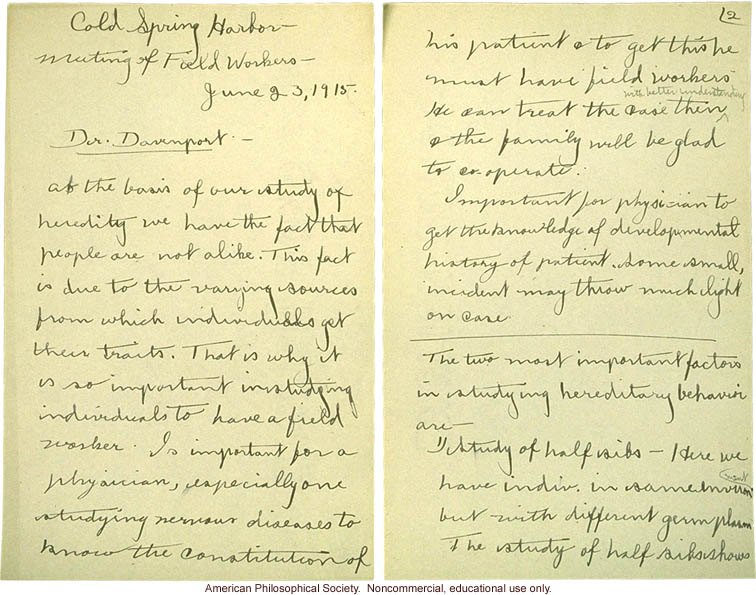 Cold Spring Harbor -
Meeting of Field Workers -
June 23, 1915.
Dr. Davenport. -
at the basis of our study of
heredity we have the fact that
people are not alike. This fact
is due to the varying sources
from which individuals get
their traits. That is why it
is so important in studying
individuals to have a field
worker. Is important for a
physician, especially one
studying nervous diseases to
know the constitution of
2
his patient & to get this he
must have field workers
with better understanding
He can treat the case then
& the family will be glad
to co-operate.
Important for physician to
get the knowledge of developmental
history of patient. Some small,
incident may throw much light
on case.
The two most important factors
in studying hereditary behavior
are -
1) study of half sibs - Here we
have indiv. in same environ
ment
but with different germ plasm
The study of half sibs shows
American Philosophical Society. Noncommercial, educational use only.